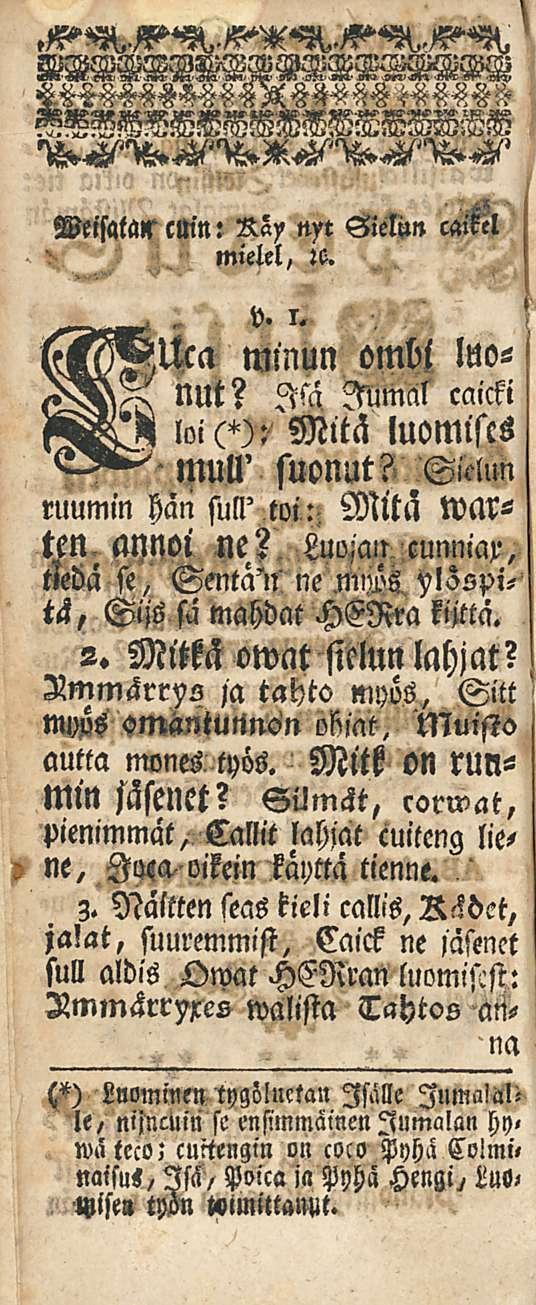 Weisatan cuin: Käy nyt Sielun caikel
mielel, ꝛc.
v. 1.
CUca minun ombi luo⸗
nut? Isä Jumal caicki
loi (*): Mitä luomises
mull' suonut? Sielun
ruumin hän sull' toi: Mitä war⸗
ten annoi ne? Luojan cunniax,
tiedä se, Sentä'n ne myös ylöspi⸗
tä, Sijs sä mahdat HERra kijttä.
2. Mitkä owat sielun lahjat?
Ymmärrys ja tahto myös, Sitt
myös omantunnon ohjat, Muisto
autta mones työs. Mitk on ruu⸗
min jäsenet? Silmät, corwat,
pienimmät, Callit lahjat cuiteng lie⸗
ne, Joca oikein käyttä tienne.
3. Näitten seas kieli callis, Kädet,
jalat, suuremmist, Caick ne jäsenet
sull aldis Owat HERran luomisest:
Ymmärryxes walista Tahtos an⸗
na
(*) Luominen tygöluetan Isälle Jumalal⸗
le, nijncuin se ensimmäinen Jumalan hy⸗
wä teco; cuitengin on coco Pyhä Colmi⸗
naisus, Isä, Poica ja Pyhä Hengi, Luo⸗
misen työn toimittanut.